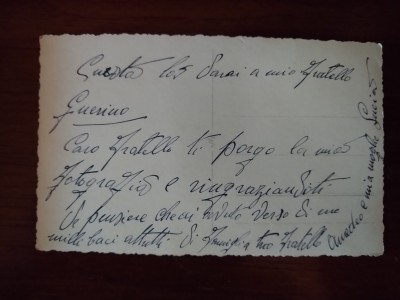 Questa la darai a mio fratello
Guerino
Caro fratello ti porgo la mia
fotografia e ringraziandoti
pensiero che ai verso di me
mille baci a tutti di tuo fratello
Amedeo e mia moglie